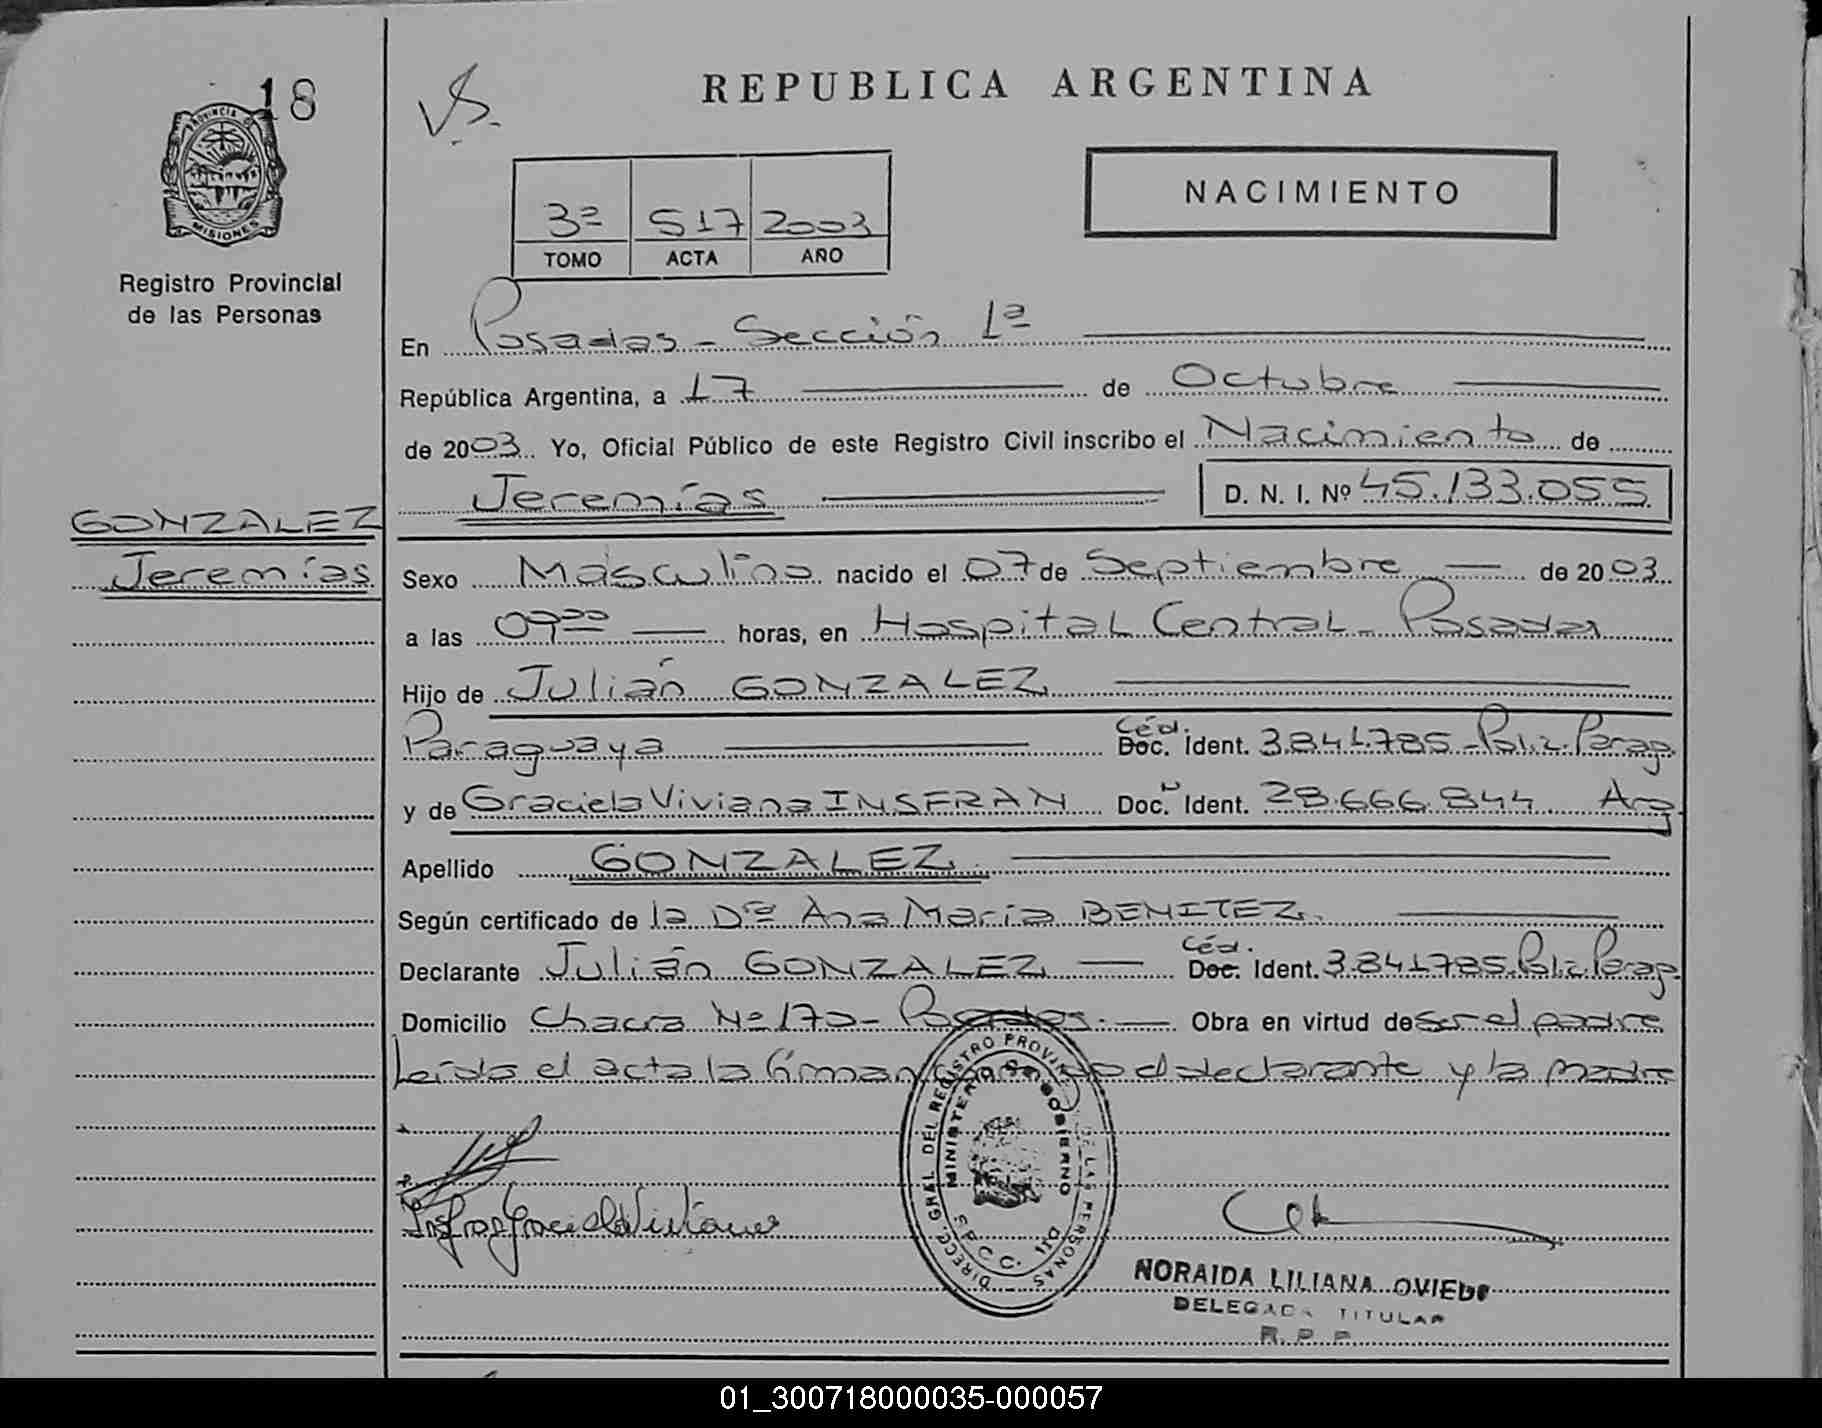 18
PROVINCIA DE
MISIONES
Registro Provincial
de las Personas
GONZALEZ
Jeremías
VS.
REPUBLICA ARGENTINA
NACIMIENTO
3º 517 2003
TOMO ACTA AÑO
En Posadas - Sección 1ª
República Argentina, a 17 de Octubre
de 2003. Yo, Oficial Público de este Registro Civil inscribo el Nacimiento de
Jeremías D. N. I. Nº 45.133.055
Sexo Masculino nacido el 07 de Septiembre de 2003
a las 09⁰⁰ horas, en Hospital Central - Posadas
Hijo de Julián GONZALEZ
Paraguaya Céd. Doc. Ident. 3.841.785 - Poliz. Parag.
y de Graciela Viviana INSFRAN Doc. Ident. 28.666.844 Arg
Apellido GONZALEZ.
Según certificado de la Dra Ana María BENITEZ.
Declarante Julián GONZALEZ Céd. Doc. Ident. 3.841.785. Poliz Parag.
Domicilio Chacra Nº 170 - Posadas. Obra en virtud de ser el padre
Leída el acta la firman el declarante y la madre
Insfran Graciela Viviana
DIRECC. GRAL DEL REGISTRO PROVINCIAL DE LAS PERSONAS
MINISTERIO DE GOBIERNO
SECC.
NORAIDA LILIANA OVIEDO
DELEGADA TITULAR
R. P. P.
01_300718000035-000057